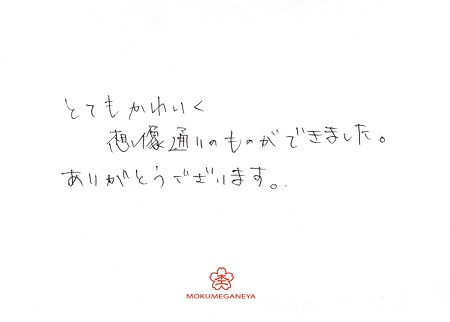 とてもかわいく
想像通りのものができました。
ありがとうございます。
MOKUMEGANEYA